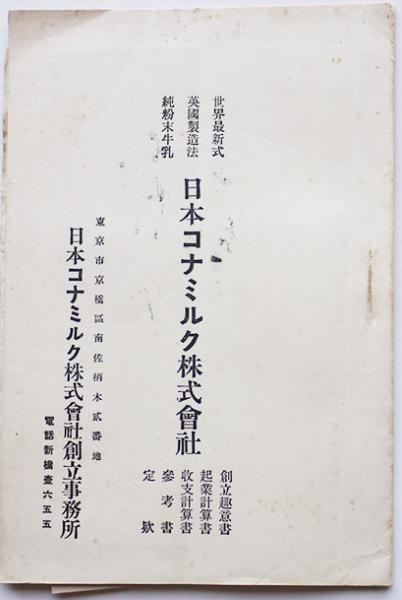 世界最新式
英國製造法
純粉末牛乳
日本コナミルク株式會社
創立趣意書
起業計算書
收支計算書
參考書
定欵
東京市京橋區南佐柄木貳番地
日本コナミルク株式會社創立事務所
電話新橋壹六五五